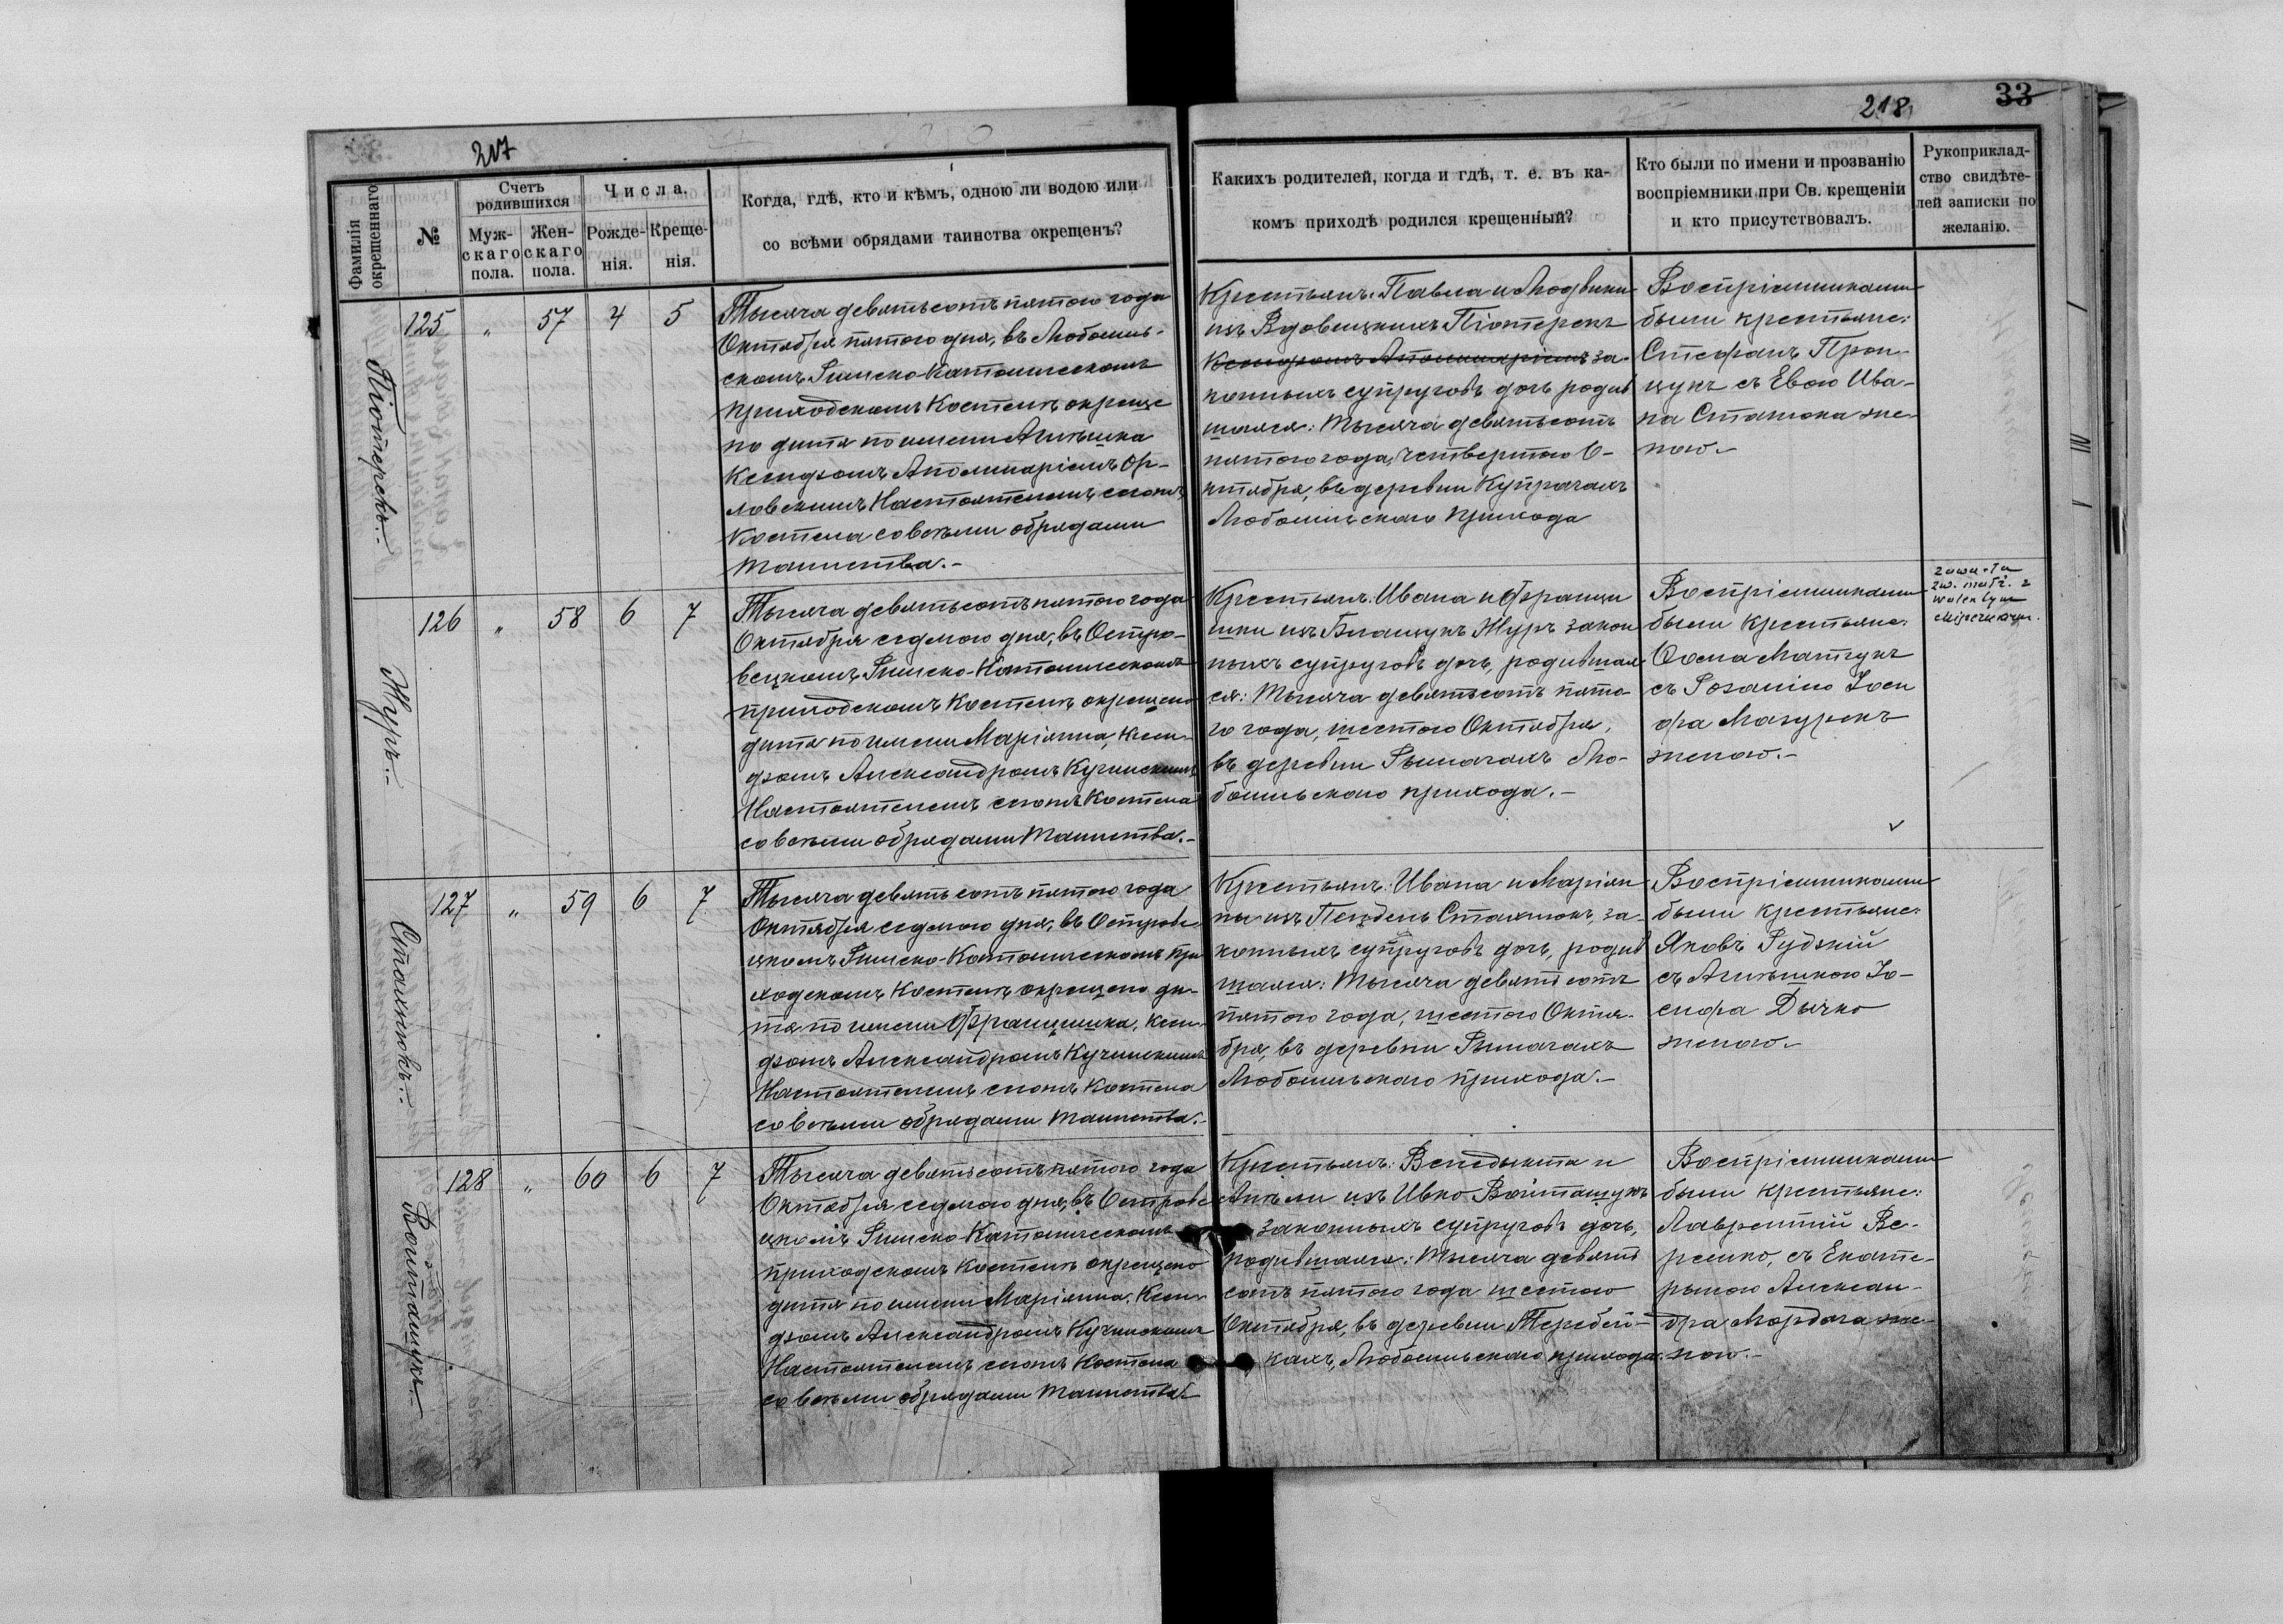 217
218
33
Фамилія окрещеннаго
№
Счетъ родившихся
Муж-
скаго
пола.
Жен-
скаго
пола.
Числа.
Рожде-
нія.
Креще-
нія.
Когда, гдѣ, кто и кѣмъ, одною ли водою или
со всѣми обрядами таинства окрещенъ?
Какихъ родителей, когда и гдѣ, т. е. въ ка-
комъ приходѣ родился крещенный?
Кто были по имени и прозванію
воспріемники при Св. крещеніи
и кто присутствовалъ.
Рукоприклад-
ство свидѣте-
лей записки по
желанію.
Піотерекъ.
125 " 57 4 5
Тысяча девятьсотъ пятого года
Октября пятого дня, въ Любомль-
скомъ Римско-Католическомъ
приходскомъ Костелѣ окреще
но дитя по имени Агнѣшка
Ксендзомъ Аполинаріемъ Ор-
ловскимъ Настоятелемъ сего
Костела со всѣми обрядами
таинства.-
Крестьянъ: Павла и Людвики
изъ Вдовицкихъ Піотерекъ
Ксендзомъ Аполинаріемъ за-
конныхъ супруговъ дочь родив
шаяся: Тысяча девятьсотъ
пятого года, четвертого О-
ктября, въ деревни Купрачахъ
Любомльскаго прихода
Воспріемниками
были крестьяне:
Стефанъ Проп-
цукъ съ Евою Ива-
на Сталюка же-
ною.-
Журъ.
126 " 58 6 7
Тысяча девятьсотъ пятого года
Октября седьмого дня, въ Остро-
вецкомъ Римско-Католическомъ
приходскомъ Костелѣ окрещено
дитя по имени Маріянна, Ксен-
дзомъ Александромъ Кучинскимъ
Настоятелемъ сего Костела
со всѣми обрядами таинства.-
Крестьянъ: Ивана и Францъ
шки изъ Блащукъ Журъ закон
ныхъ супруговъ дочь, родившая
ся: Тысяча девятьсотъ пято-
го года, шестого Октября,
въ деревни Рымачахъ Лю-
бомльскаго прихода.-
Воспріемниками
были крестьяне:
Ѳома Матчукъ
съ Розаліею Іоси
фа Мазурекъ
женою.-
zawarła
zw. małż. z
walentym
Misiewiczem.
Сталюкъ.
127 " 59 6 7
Тысяча девятьсотъ пятого года
Октября седьмого дня, въ Островe
цкомъ Римско-Католическомъ при
ходскомъ Костелѣ окрещено ди-
тя по имени Францишка, Ксен-
дзомъ Александромъ Кучинскимъ
Настоятелемъ сего Костела
со всѣми обрядами таинства.
Крестьянъ: Ивана и Маріян
ны изъ Пендель Сталюкъ, за-
конныхъ супруговъ дочь, родив
шаяся: Тысяча девятьсотъ
пятого года, шестого Октя-
бря, въ деревни Рымачахъ
Любомльскаго прихода.-
Воспріемниками
были крестьяне:
Яковъ Рудзкій
съ Агнѣшкою Іо-
сифа Дычко
женою.-
Войташукъ.
128 " 60 6 7
Тысяча девятьсотъ пятого года
Октября седьмого дня, въ Островe
цкомъ Римско-Католическомъ
приходскомъ Костелѣ окрещено
дитя по имени Маріянна, Ксен-
дзомъ Александромъ Кучинскимъ
Настоятелемъ сего Костела
со всѣми обрядами таинства.
Крестьянъ: Венедыкта и
Анѣли изъ Ивко Войташукъ
законныхъ супруговъ дочь,
родившаяся: Тысяча девять
сотъ пятого года шестого
Октября, въ деревни Теребей-
кахъ, Любомльскаго прихода.
Воспріемниками
были крестьяне:
Лаврентій Ве-
ремко, съ Екате-
рыною Алексан-
дра Мордача же-
ною.-